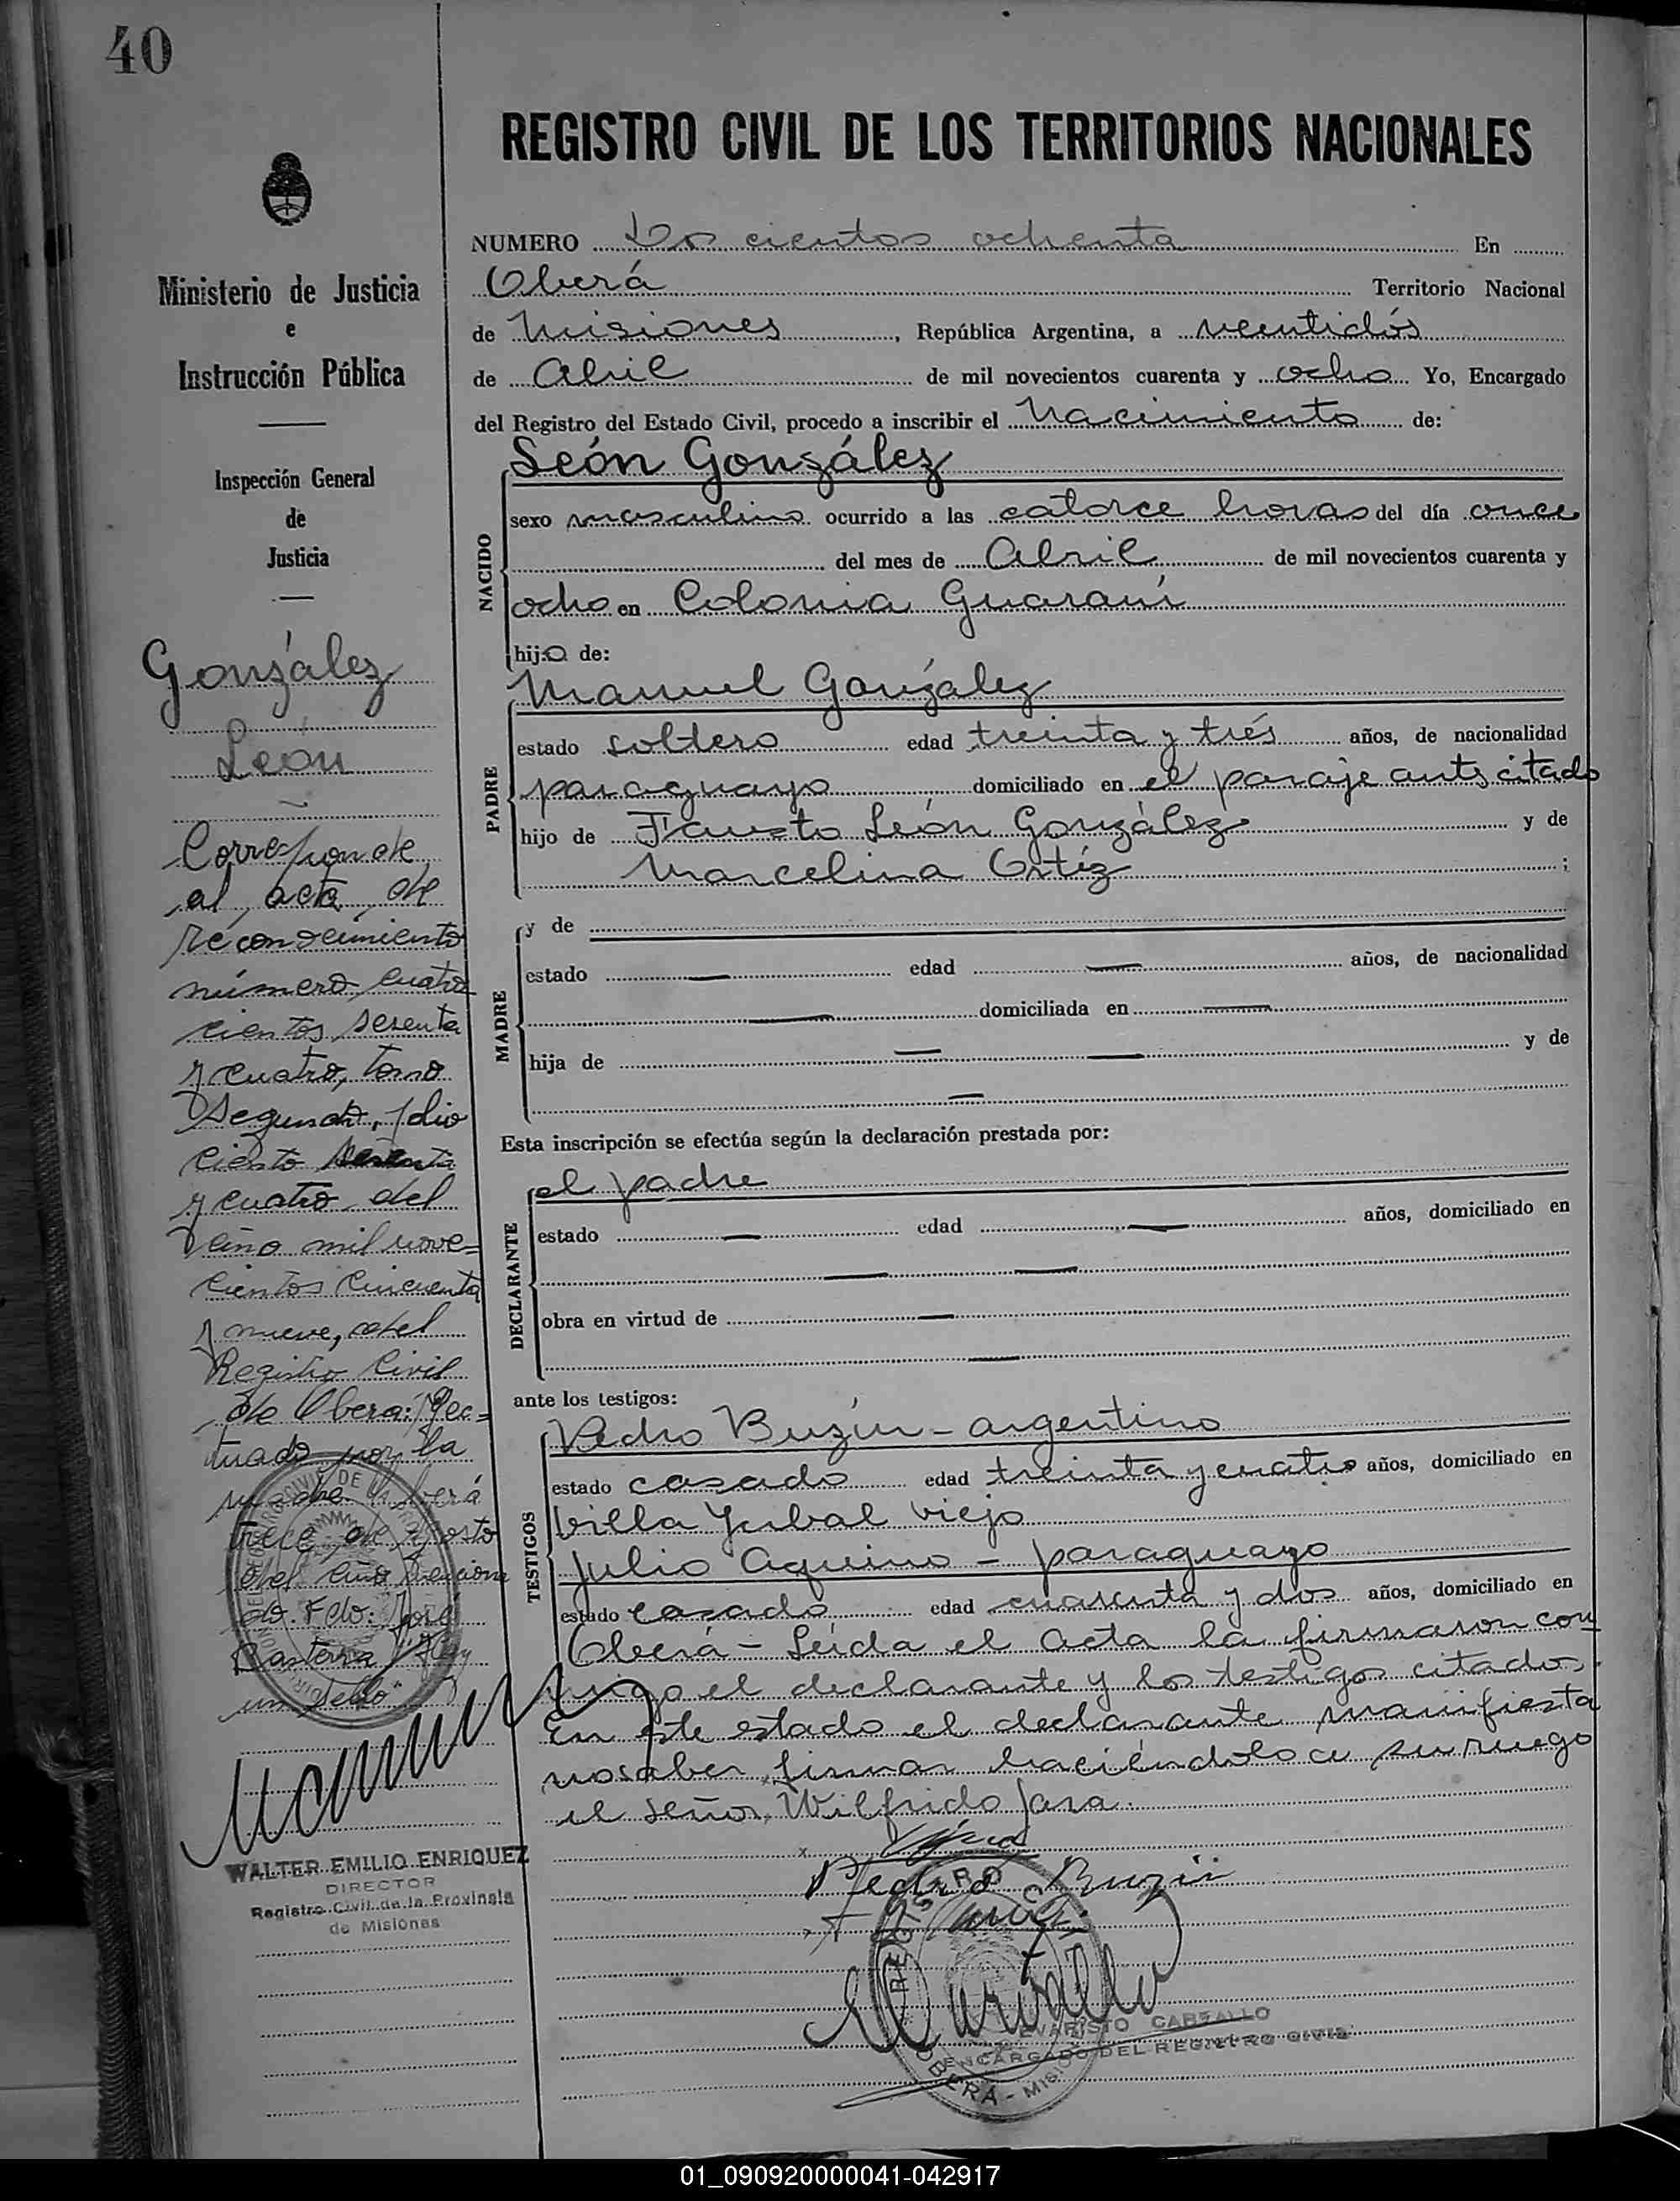 40
REGISTRO CIVIL DE LOS TERRITORIOS NACIONALES
Ministerio de Justicia
e
Instrucción Pública
Inspección General
de
Justicia
González
León
Corresponde
al acta de
reconocimiento
número cuatro
cientos sesenta
y cuatro, tomo
segundo, folio
ciento sesenta
y cuatro del
año mil nove=
cientos cincuenta
y nueve, del
Registro Civil
de Oberá: efec=
tuado por la
madre. Oberá
trece de agosto
del año menciona
do. Fdo: José
Basterra "Hay
un sello"
WALTER EMILIO ENRIQUEZ
DIRECTOR
Registro Civil de la Provincia
de Misiones
NUMERO Dos cientos ochenta En
Oberá Territorio Nacional
de Misiones, República Argentina, a veintidós
de Abril de mil novecientos cuarenta y ocho Yo, Encargado
del Registro del Estado Civil, procedo a inscribir el Nacimiento de:
NACIDO
León González
sexo masculino ocurrido a las catorce horas del día once
del mes de Abril de mil novecientos cuarenta y
ocho en Colonia Guaraní
hijo de:
PADRE
Manuel González
estado soltero edad treinta y trés años, de nacionalidad
paraguayo domiciliado en el paraje antes citado
hijo de Fausto León González y de
Marcelina Ortíz ;
MADRE
y de
estado — edad — años, de nacionalidad
— domiciliada en —
hija de — — y de
—
Esta inscripción se efectúa según la declaración prestada por:
DECLARANTE
el padre
estado — edad — años, domiciliado en
— —
obra en virtud de —
—
ante los testigos:
TESTIGOS
Pedro Buzin - argentino
estado casado edad treinta y cuatro años, domiciliado en
Villa Yerbal Viejo
Julio Aquino - paraguayo
estado casado edad cuarenta y dos años, domiciliado en
Oberá - Leída el acta la firmaron con
migo el declarante y los testigos citados.
En este estado el declarante manifiesta
no saber firmar haciéndolo a su ruego
el señor Wilfrido Jara.
Pedro Buzin
EVARISTO CARBALLO
ENCARGADO DEL REGISTRO CIVIL
OBERA - MIS.
01_090920000041-042917